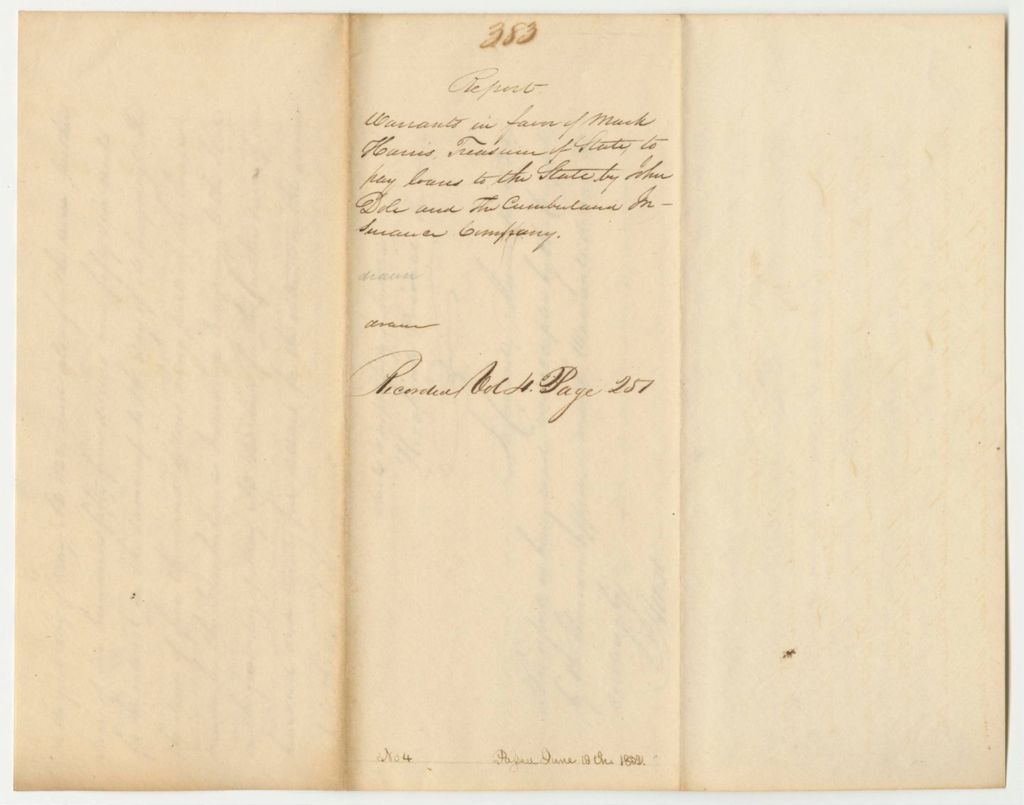 383
Report
Warrants in favor of Mark
Harris, Treasurer of State, to
pay loans to the State by John
Dole and The Cumberland In-
surance Company.
drawn
drawn
Recorded Vol 4. Page 251
No 4
June 18 1832.